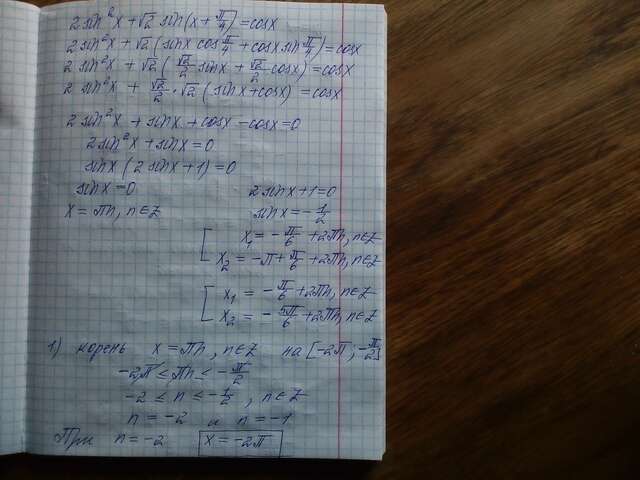 2 sin²x + √2 sin(x + π/4) = cosx
2 sin²x + √2 (sinx cos π/4 + cosx sin π/4) = cosx
2 sin²x + √2 (√2/2 sinx + √2/2 cosx) = cosx
2 sin²x + √2/2 · √2 (sinx + cosx) = cosx
2 sin²x + sinx + cosx - cosx = 0
2 sin²x + sinx = 0
sinx (2 sinx + 1) = 0
sinx = 0 2 sinx + 1 = 0
x = πn, n∈Z sinx = -1/2
x₁ = -π/6 + 2πn, n∈Z
x₂ = -π + π/6 + 2πn, n∈Z
x₁ = -π/6 + 2πn, n∈Z
x₂ = -5π/6 + 2πn, n∈Z
1) корень x = πn, n∈Z на [-2π; -π/2]
-2π ≤ πn ≤ -π/2
-2 ≤ n ≤ -1/2, n∈Z
n = -2 и n = -1
При n = -2 x = -2π